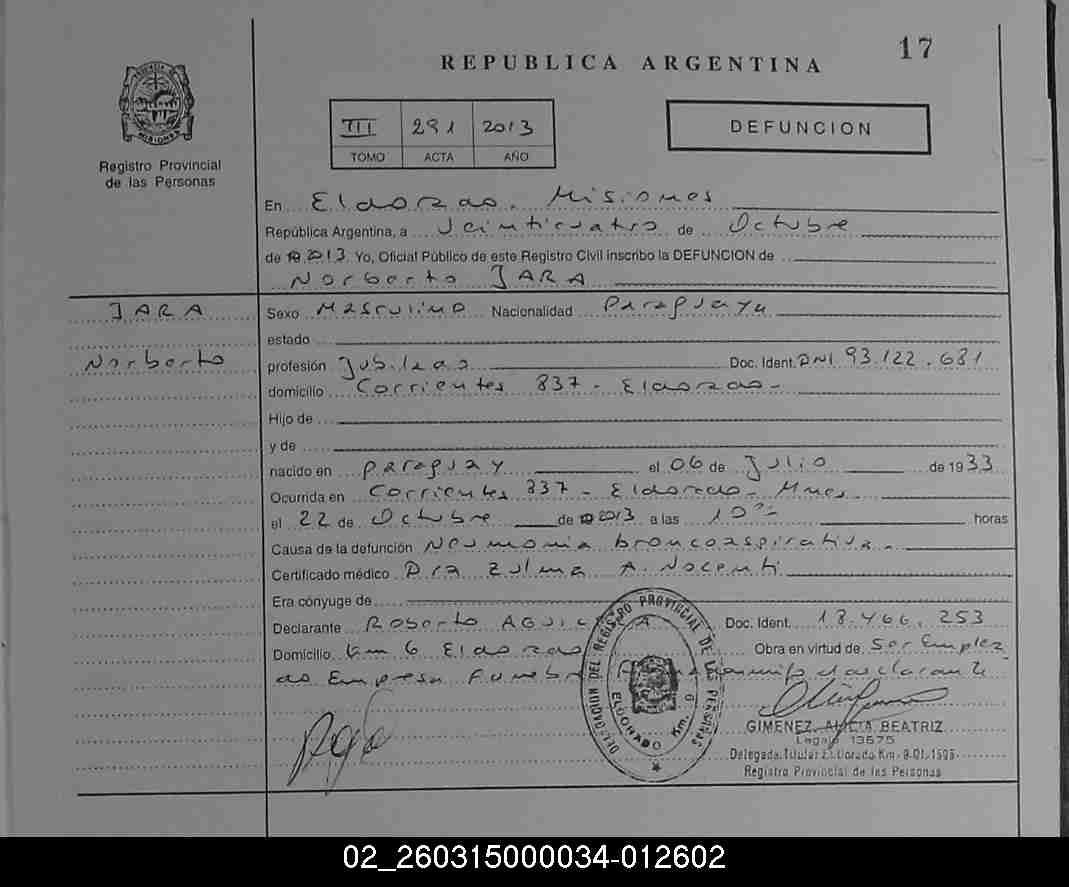 17
REPUBLICA ARGENTINA
III 291 2013
TOMO ACTA AÑO
DEFUNCION
Registro Provincial
de las Personas
En Eldorado. Misiones
República Argentina, a Veinticuatro de Octubre
de 2013. Yo, Oficial Público de este Registro Civil inscribo la DEFUNCION de
Norberto JARA
JARA
Norberto
Sexo Masculino Nacionalidad Paraguaya
estado
profesión Jubilado Doc. Ident. DNI 93.122.681
domicilio Corrientes 837 - Eldorado -
Hijo de
y de
nacido en Paraguay el 06 de Julio de 1933
Ocurrida en Corrientes 837 - Eldorado - Mnes.
el 22 de Octubre de 2013 a las 10 horas
Causa de la defunción Neumonia broncoaspirativa.
Certificado médico Dra Zulma A. Nocenti
Era cónyuge de
Declarante Roberto AGUILERA Doc. Ident. 18.466.253
Domicilio Km 6 Eldorado Obra en virtud de Ser Emplea
do Empresa Funebre declarante
DELEGACION DEL REGISTRO PROVINCIAL DE LAS PERSONAS
ELDORADO Km. 9
GIMENEZ, ALICIA BEATRIZ
Legajo 13575
Delegada Titular Eldorado Km. 9.01.1595
Registro Provincial de las Personas
02_260315000034-012602